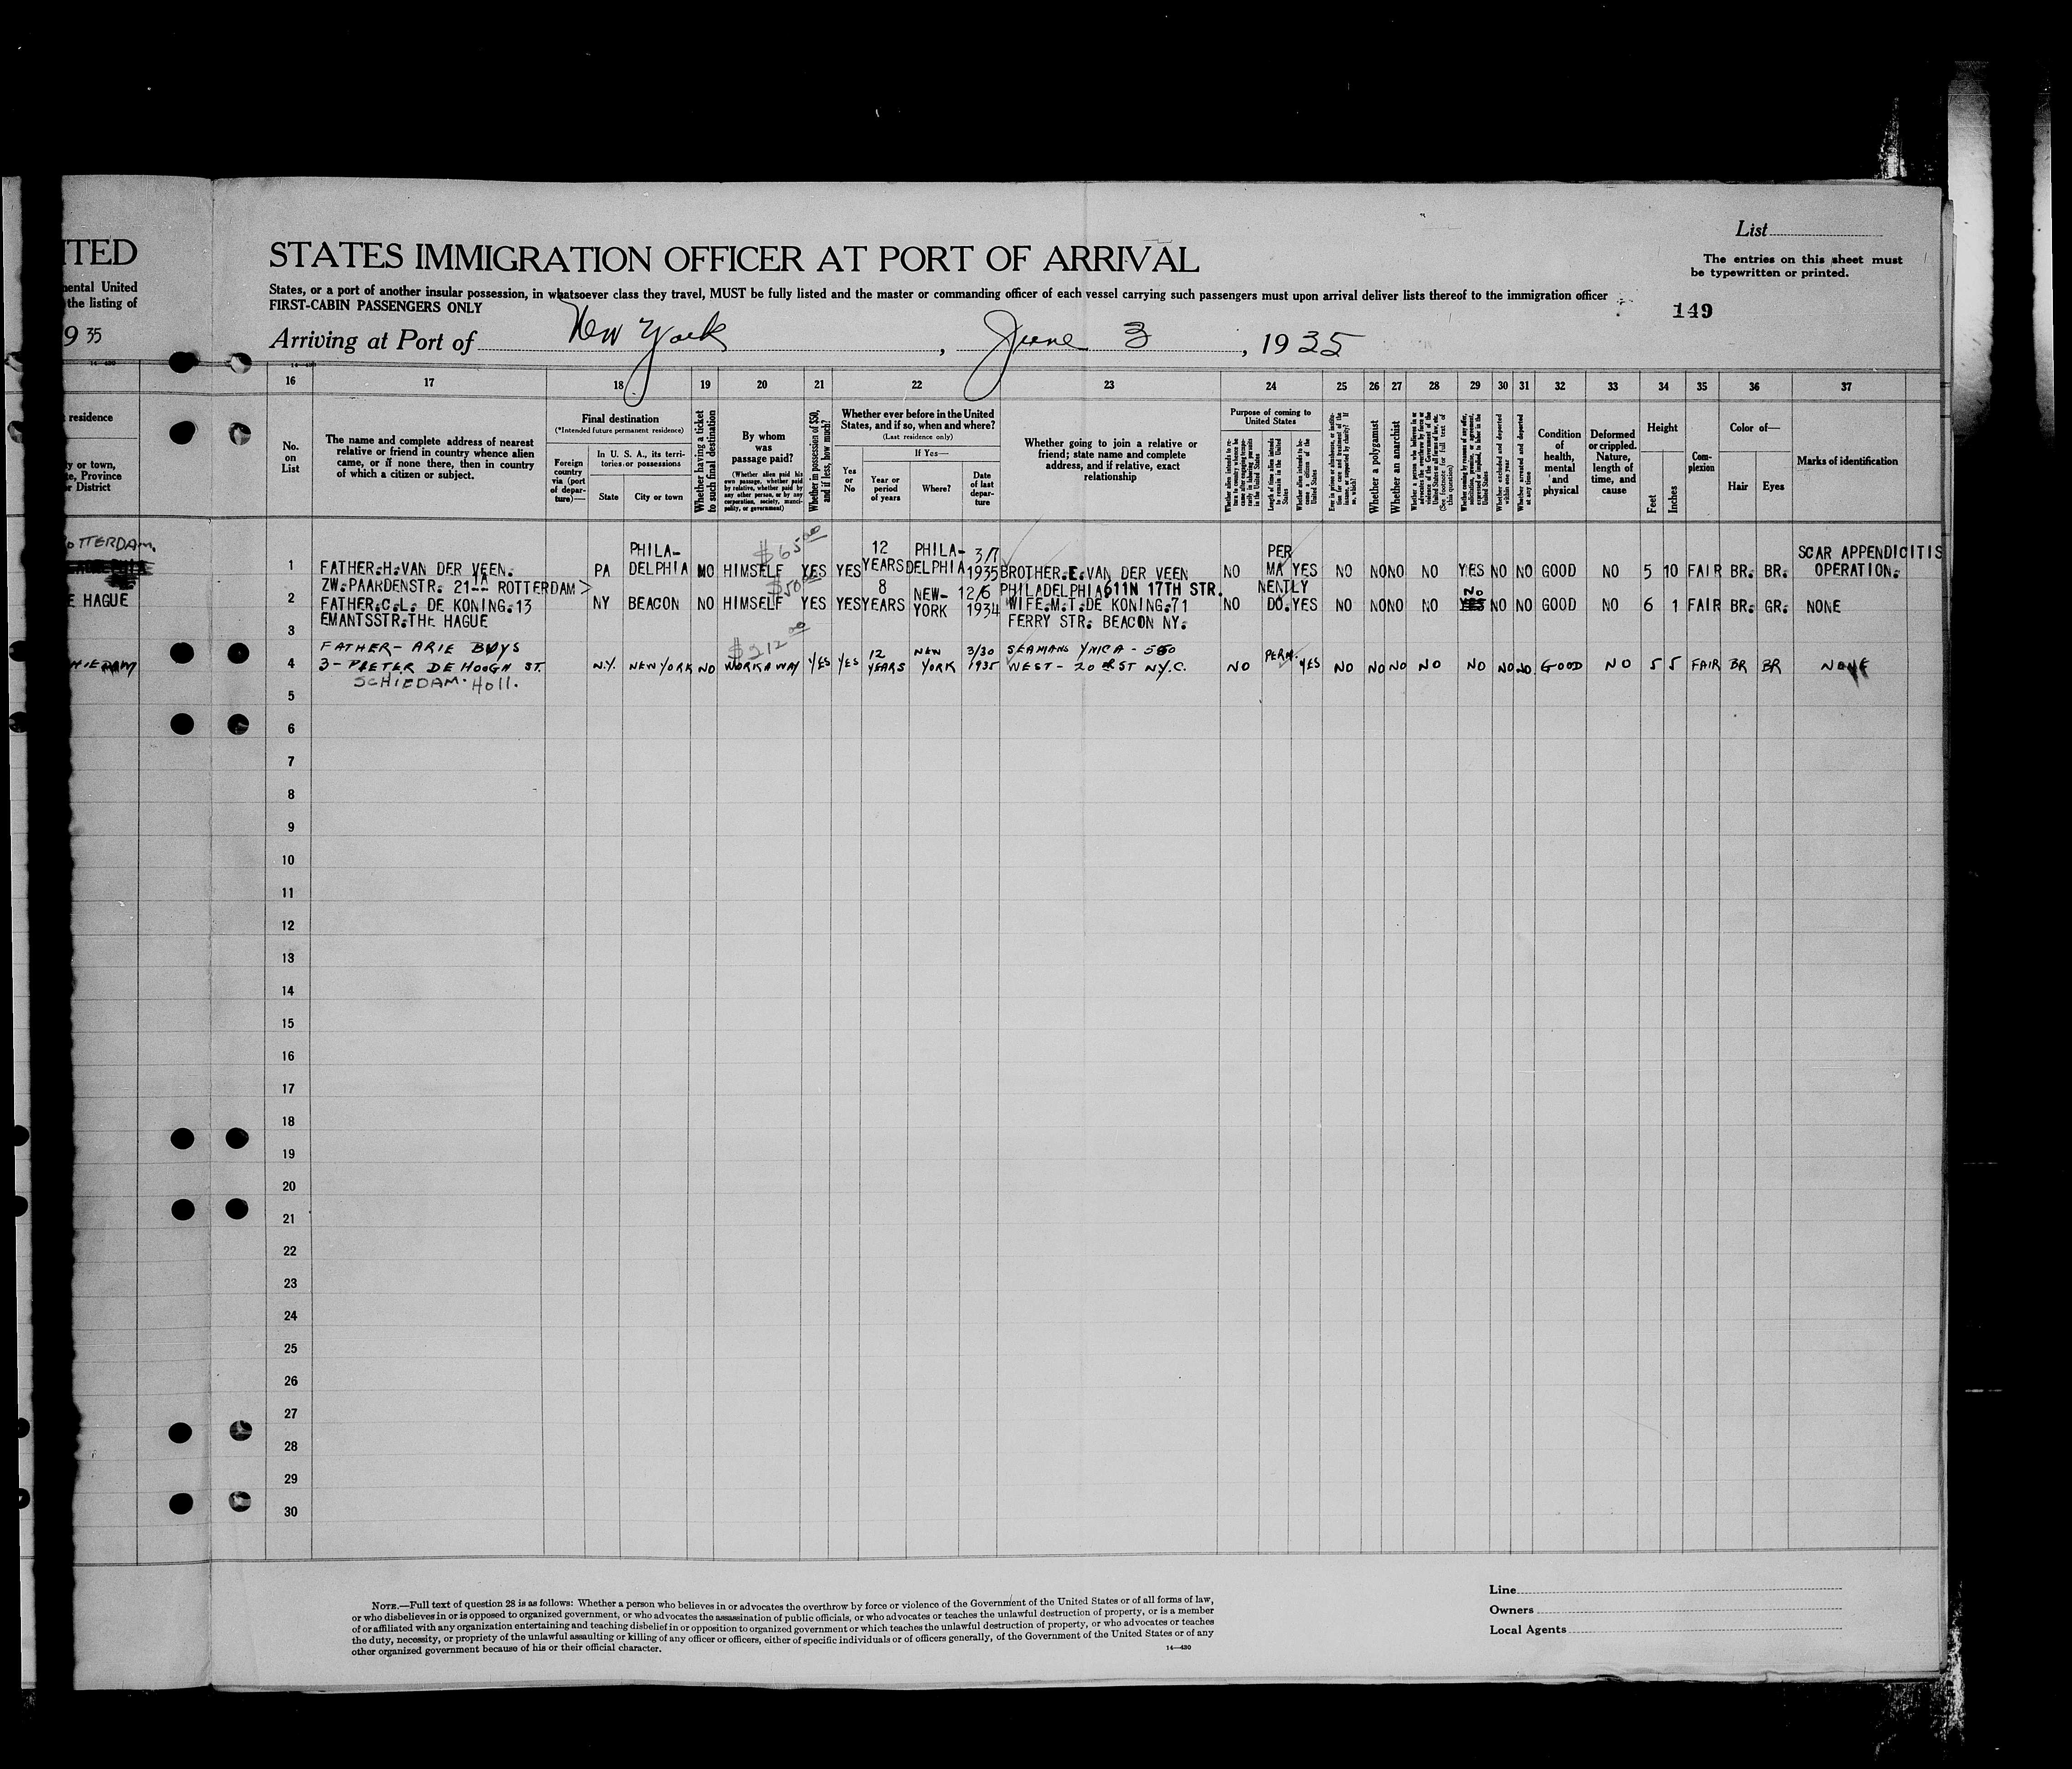 ITED
ental United
the listing of
9 35
residence
y or town,
te, Province
r District
OTTERDAM.
E HAGUE
HIEDAM
List
STATES IMMIGRATION OFFICER AT PORT OF ARRIVAL
The entries on this sheet must
be typewritten or printed.
States, or a port of another insular possession, in whatsoever class they travel, MUST be fully listed and the master or commanding officer of each vessel carrying such passengers must upon arrival deliver lists thereof to the immigration officer
FIRST-CABIN PASSENGERS ONLY
149
Arriving at Port of New York, June 3, 1935
16 17 18 19 20 21 22 23 24 25 26 27 28 29 30 31 32 33 34 35 36 37
No.
on
List
The name and complete address of nearest
relative or friend in country whence alien
came, or if none there, then in country
of which a citizen or subject.
Final destination
(*Intended future permanent residence)
Foreign
country
via (port
of depar-
ture)—
In U. S. A., its terri-
tories or possessions
State
City or town
Whether having a ticket
to such final destination
By whom
was
passage paid?
(Whether alien paid his
own passage, whether paid
by relative, whether paid by
any other person, or by any
corporation, society, munici-
pality, or government)
Whether in possession of $50,
and if less, how much?
Whether ever before in the United
States, and if so, when and where?
(Last residence only)
Yes
or
No
If Yes—
Year or
period
of years
Where?
Date
of last
depar-
ture
Whether going to join a relative or
friend; state name and complete
address, and if relative, exact
relationship
Purpose of coming to
United States
Length of time alien intends
to remain in the United
States
Whether alien intends to be-
come a citizen of the
United States
Whether a polygamist
Whether an anarchist
Whether excluded and deported
within one year
Whether arrested and deported
at any time
Condition
of
health,
mental
and
physical
Deformed
or crippled.
Nature,
length of
time, and
cause
Height
Feet
Inches
Com-
plexion
Color of—
Hair
Eyes
Marks of identification
$65.00
PHILA- 12 PHILA- 3/7 PER SCAR APPENDICITIS
1 FATHER.H.VAN DER VEEN. PA DELPHIA NO HIMSELF YES YES YEARS DELPHIA 1935 BROTHER.E.VAN DER VEEN NO MA YES NO NO NO NO YES NO NO GOOD NO 5 10 FAIR BR. BR. OPERATION.
ZW.PAARDENSTR. 21 A ROTTERDAM > $50 8 NEW- 12/6 PHILADELPHIA 611N 17TH STR. NENTLY No
2 FATHER.C.L. DE KONING.13 NY BEACON NO HIMSELF YES YES YEARS YORK 1934 WIFE.M.T.DE KONING.71 NO DO. YES NO NO NO NO YES NO NO GOOD NO 6 1 FAIR BR. GR. NONE
EMANTSSTR.THE HAGUE FERRY STR. BEACON NY.
3
FATHER- ARIE BUYS $212.00 12 NEW 3/30 SEAMANS YMCA - 550 PERM.
4 3- PIETER DE HOOGH ST. N.Y. NEW YORK NO WORKAWAY YES YES YEARS YORK 1935 WEST - 20 ST N.Y.C. NO YES NO NO NO NO NO NO NO GOOD NO 5 5 FAIR BR BR NONE
SCHIEDAM. Holl.
5
6
7
8
9
10
11
12
13
14
15
16
17
18
19
20
21
22
23
24
25
26
27
28
29
30
NOTE.—Full text of question 28 is as follows: Whether a person who believes in or advocates the overthrow by force or violence of the Government of the United States or of all forms of law,
or who disbelieves in or is opposed to organized government, or who advocates the assassination of public officials, or who advocates or teaches the unlawful destruction of property, or is a member
of or affiliated with any organization entertaining and teaching disbelief in or opposition to organized government or which teaches the unlawful destruction of property, or who advocates or teaches
the duty, necessity, or propriety of the unlawful assaulting or killing of any officer or officers, either of specific individuals or of officers generally, of the Government of the United States or of any
other organized government because of his or their official character.
14—430
Line
Owners
Local Agents